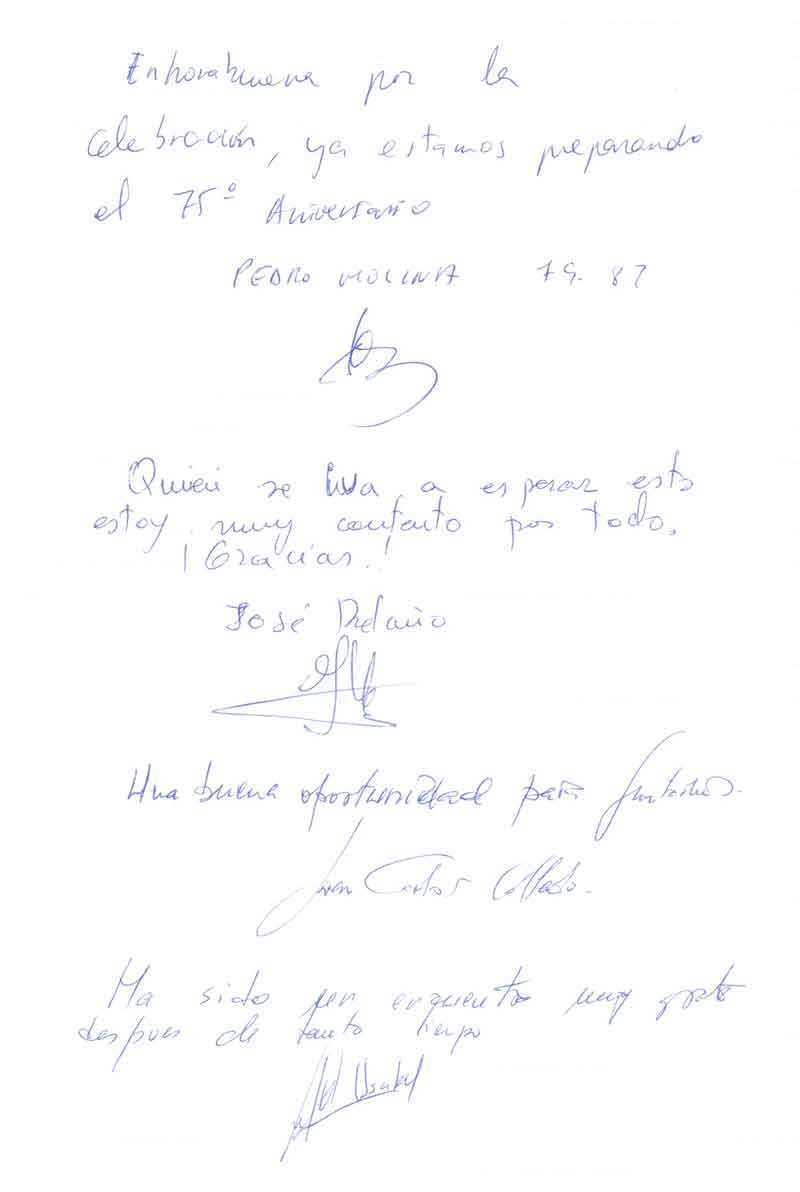 Enhorabuena por la
celebración, ya estamos preparando
el 75º Aniversario
PEDRO MOLINA 79-87
Quien se iva a esperar esto
estoy muy contento por todo.
¡Gracias!
José
Una buena oportunidad para juntarnos.
Juan Carlos Collado.
Ha sido un encuentro muy grato
despues de tanto tiempo